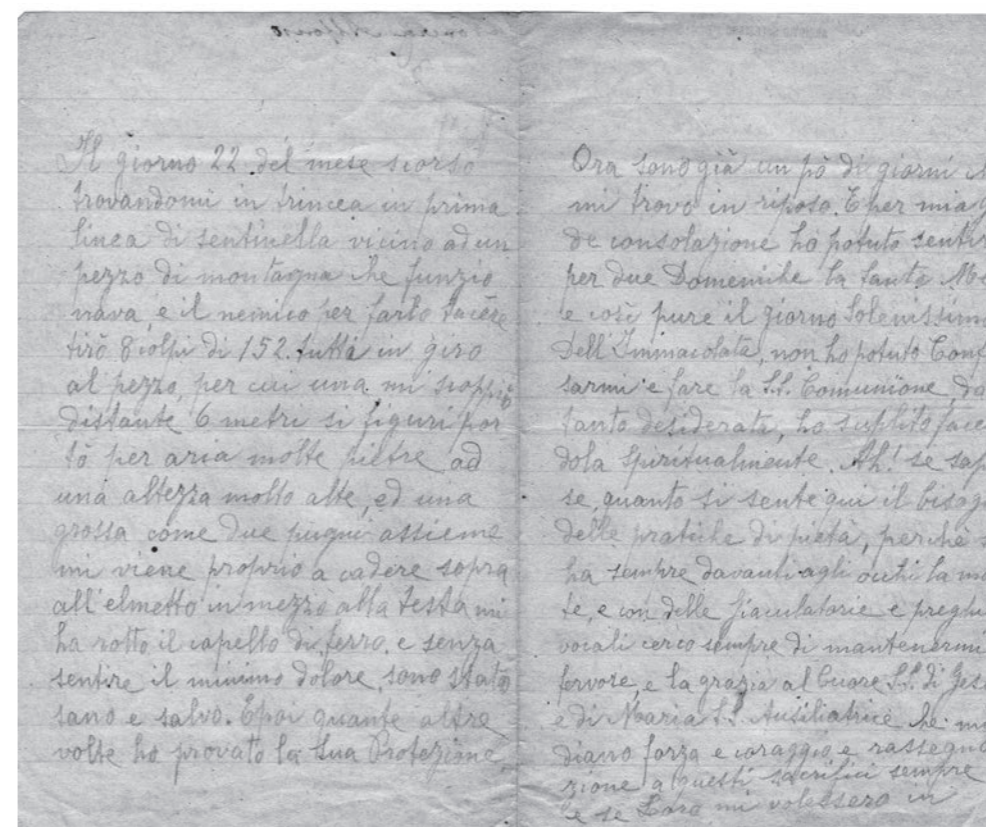 Alfonso
Il giorno 22 del mese scorso
trovandomi in trincea in prima
linea di sentinella vicino ad un
pezzo di montagna che funzio
nava, e il nemico per farlo tacere
tirò 8 colpi di 152. tutti in giro
al pezzo, per cui una mi scoppiò
distante 6 metri si figuri por
tò per aria molte pietre ad
una altezza molto alte, ed una
grossa come due pugni assieme
mi viene proprio a cadere sopra
all'elmetto in mezzo alla testa mi
ha rotto il capello di ferro, e senza
sentire il minimo dolore, sono stato
sano e salvo. E poi quante altre
volte ho provato la Sua Protezione
Ora sono già un pò di giorni
mi trovo in riposo. E per mia g
de consolazione ho potuto sentir
per due Domeniche la Santa Me
e così pure il giorno Solenissimo
Dell'Immacolata, non ho potuto Conf
sarmi e fare la S.S. Comunione, da
tanto desiderata, ho suplito face
dola Spiritualmente. Ah! se sap
se, quanto si sente qui il bisog
delle pratiche di pietà, perchè s
ha sempre davanti agli occhi la mo
te, e con delle Giaculatorie e preghi
vocali cerco sempre di mantenermi
fervose, e la grazia al Cuore S.S. di Jes
e di Maria S.S. Ausiliatrice che mi
diano forza e coraggio e rassegna
zione a questi sacrifici sempre
e se Loro mi volessero in